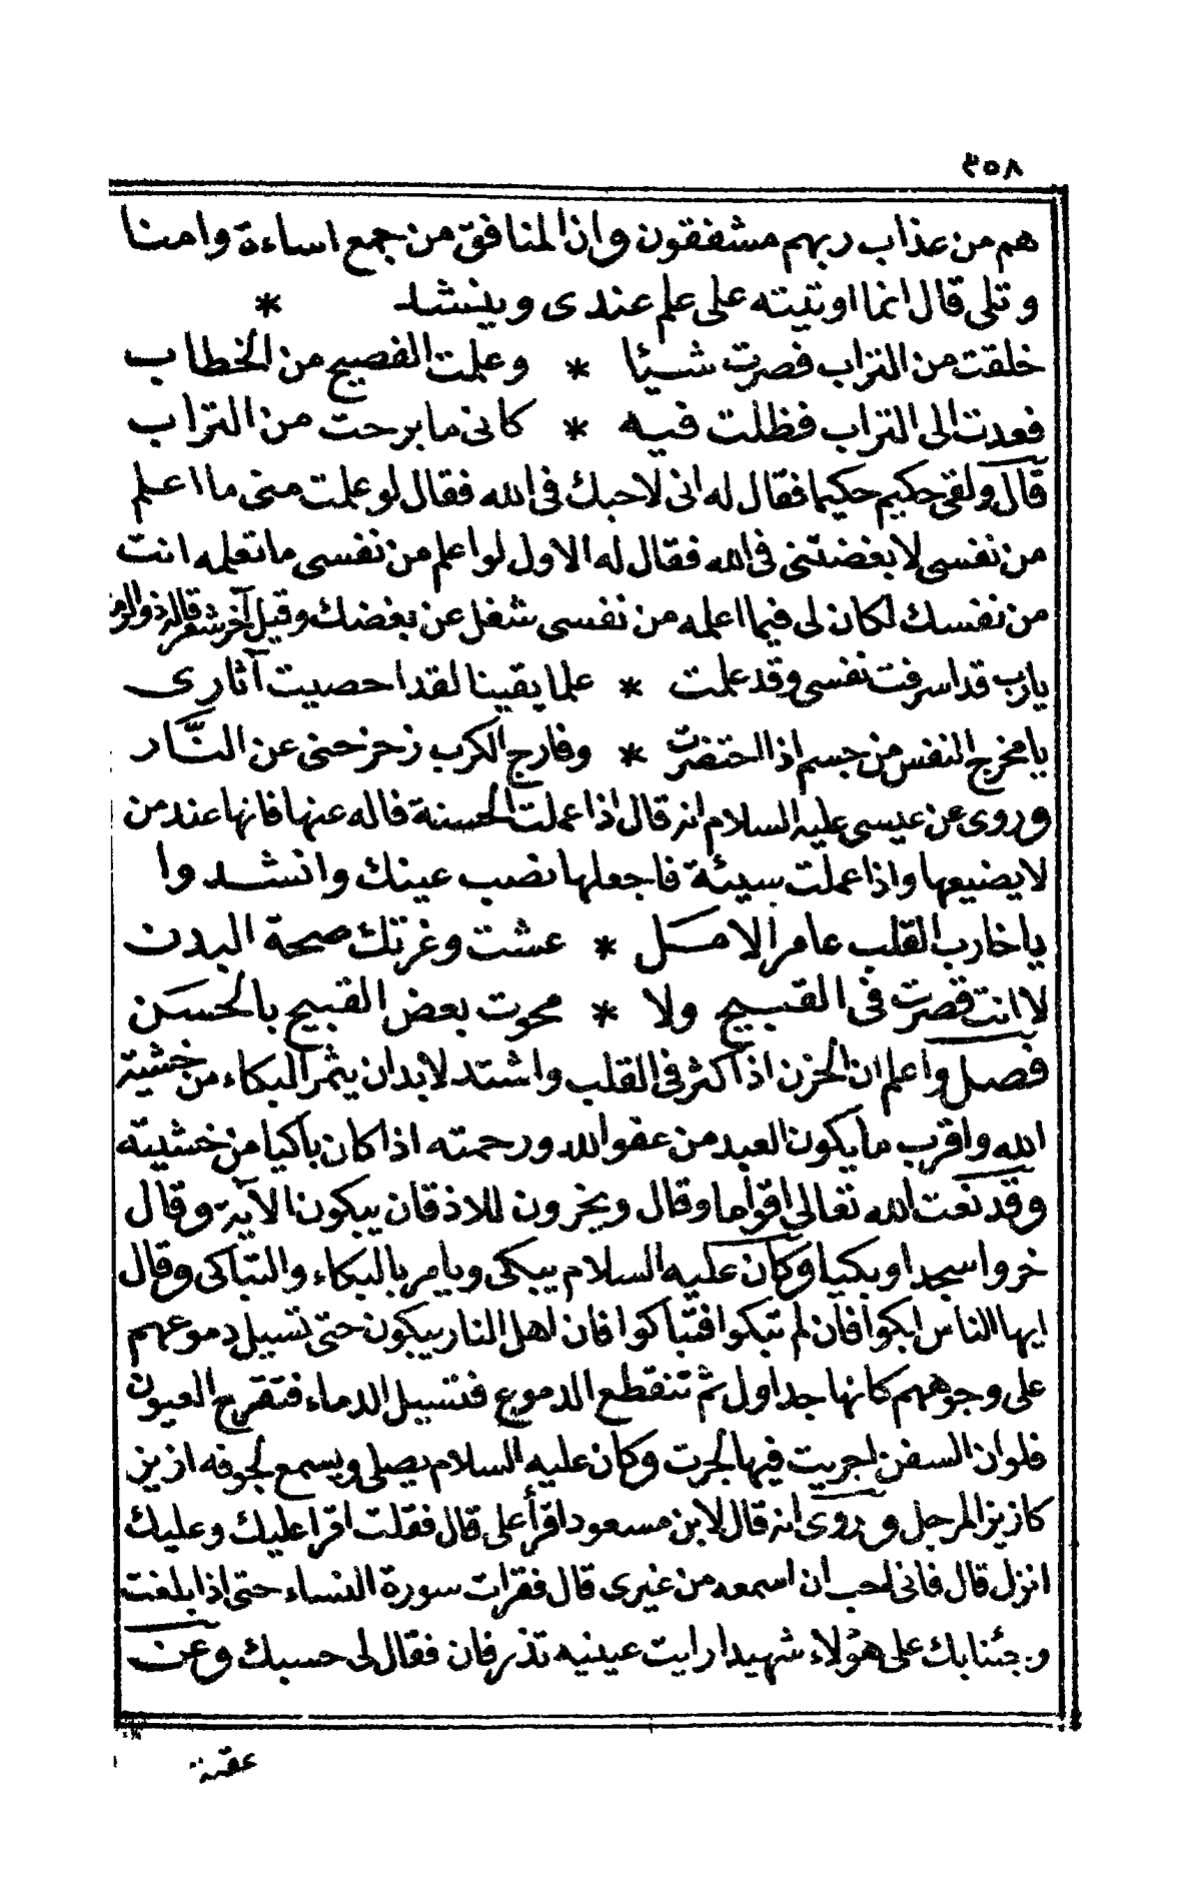 ٣٥٨
هم من عذاب ربهم مشفقون وان المنافق من جمع اساءة وامنا
وتلى قال انما اوتيته على علم عندى وينشد *
خلقت من التراب فصرت شيئا * وعلمت الفصيح من الخطاب
فعدت الى التراب فظلت فيه * كانى ما برحت من التراب
قال ولقى حكيم حكيما فقال له انى لاحبك فى الله فقال لو علمت منى ما اعلم
من نفسى لابغضتنى فى الله فقال له الاول لو اعلم من نفسى ما تعلمه انت
من نفسك لكان لى فيما اعلمه من نفسى شغل عن بغضك وقيل آخر شعر قاله ذو الرمة
يارب قد اسرفت نفسى وقد علمت * علما يقينا لقد احصيت آثارى
يا مخرج النفس من جسم اذا احتضرت * وفارج الكرب زحزحنى عن النّار
وروى عن عيسى عليه السلام انه قال اذا عملت الحسنة فاله عنها فانها عند من
لا يضيعها واذا عملت سيئة فاجعلها نصب عينك وانشدوا
يا خارب القلب عامر الامل * عشت وغرتك صحة البدن
لا انت قصرت فى القبيح ولا * محوت بعض القبيح بالحسن
فصل واعلم ان الحزن اذا كثر فى القلب واشتد لابد ان يثمر البكاء من خشية
الله واقرب ما يكون العبد من عفو الله ورحمته اذا كان باكيا من خشيته
وقد نعت الله تعالى اقواما وقال ويخرون للاذقان يبكون الآية وقال
خروا سجدا وبكيا وكان عليه السلام يبكى ويامر بالبكاء والتباكى وقال
ايها الناس ابكوا فان لم تبكوا فتباكوا فان اهل النار يبكون حتى تسيل دموعهم
على وجوههم كانها جداول ثم تنقطع الدموع فتسيل الدماء فتقرح العيون
فلو ان السفن اجريت فيها لجرت وكان عليه السلام يصلى ويسمع لجوفه ازيز
كازيز المرجل وروى انه قال لابن مسعود اقرأ على قال فقلت اقرا عليك وعليك
انزل قال فانى احب ان اسمعه من غيرى قال فقرات سورة النساء حتى اذا بلغت
وجئنا بك على هؤلاء شهيدا رايت عينيه تذرفان فقال لى حسبك وعن
عقبة